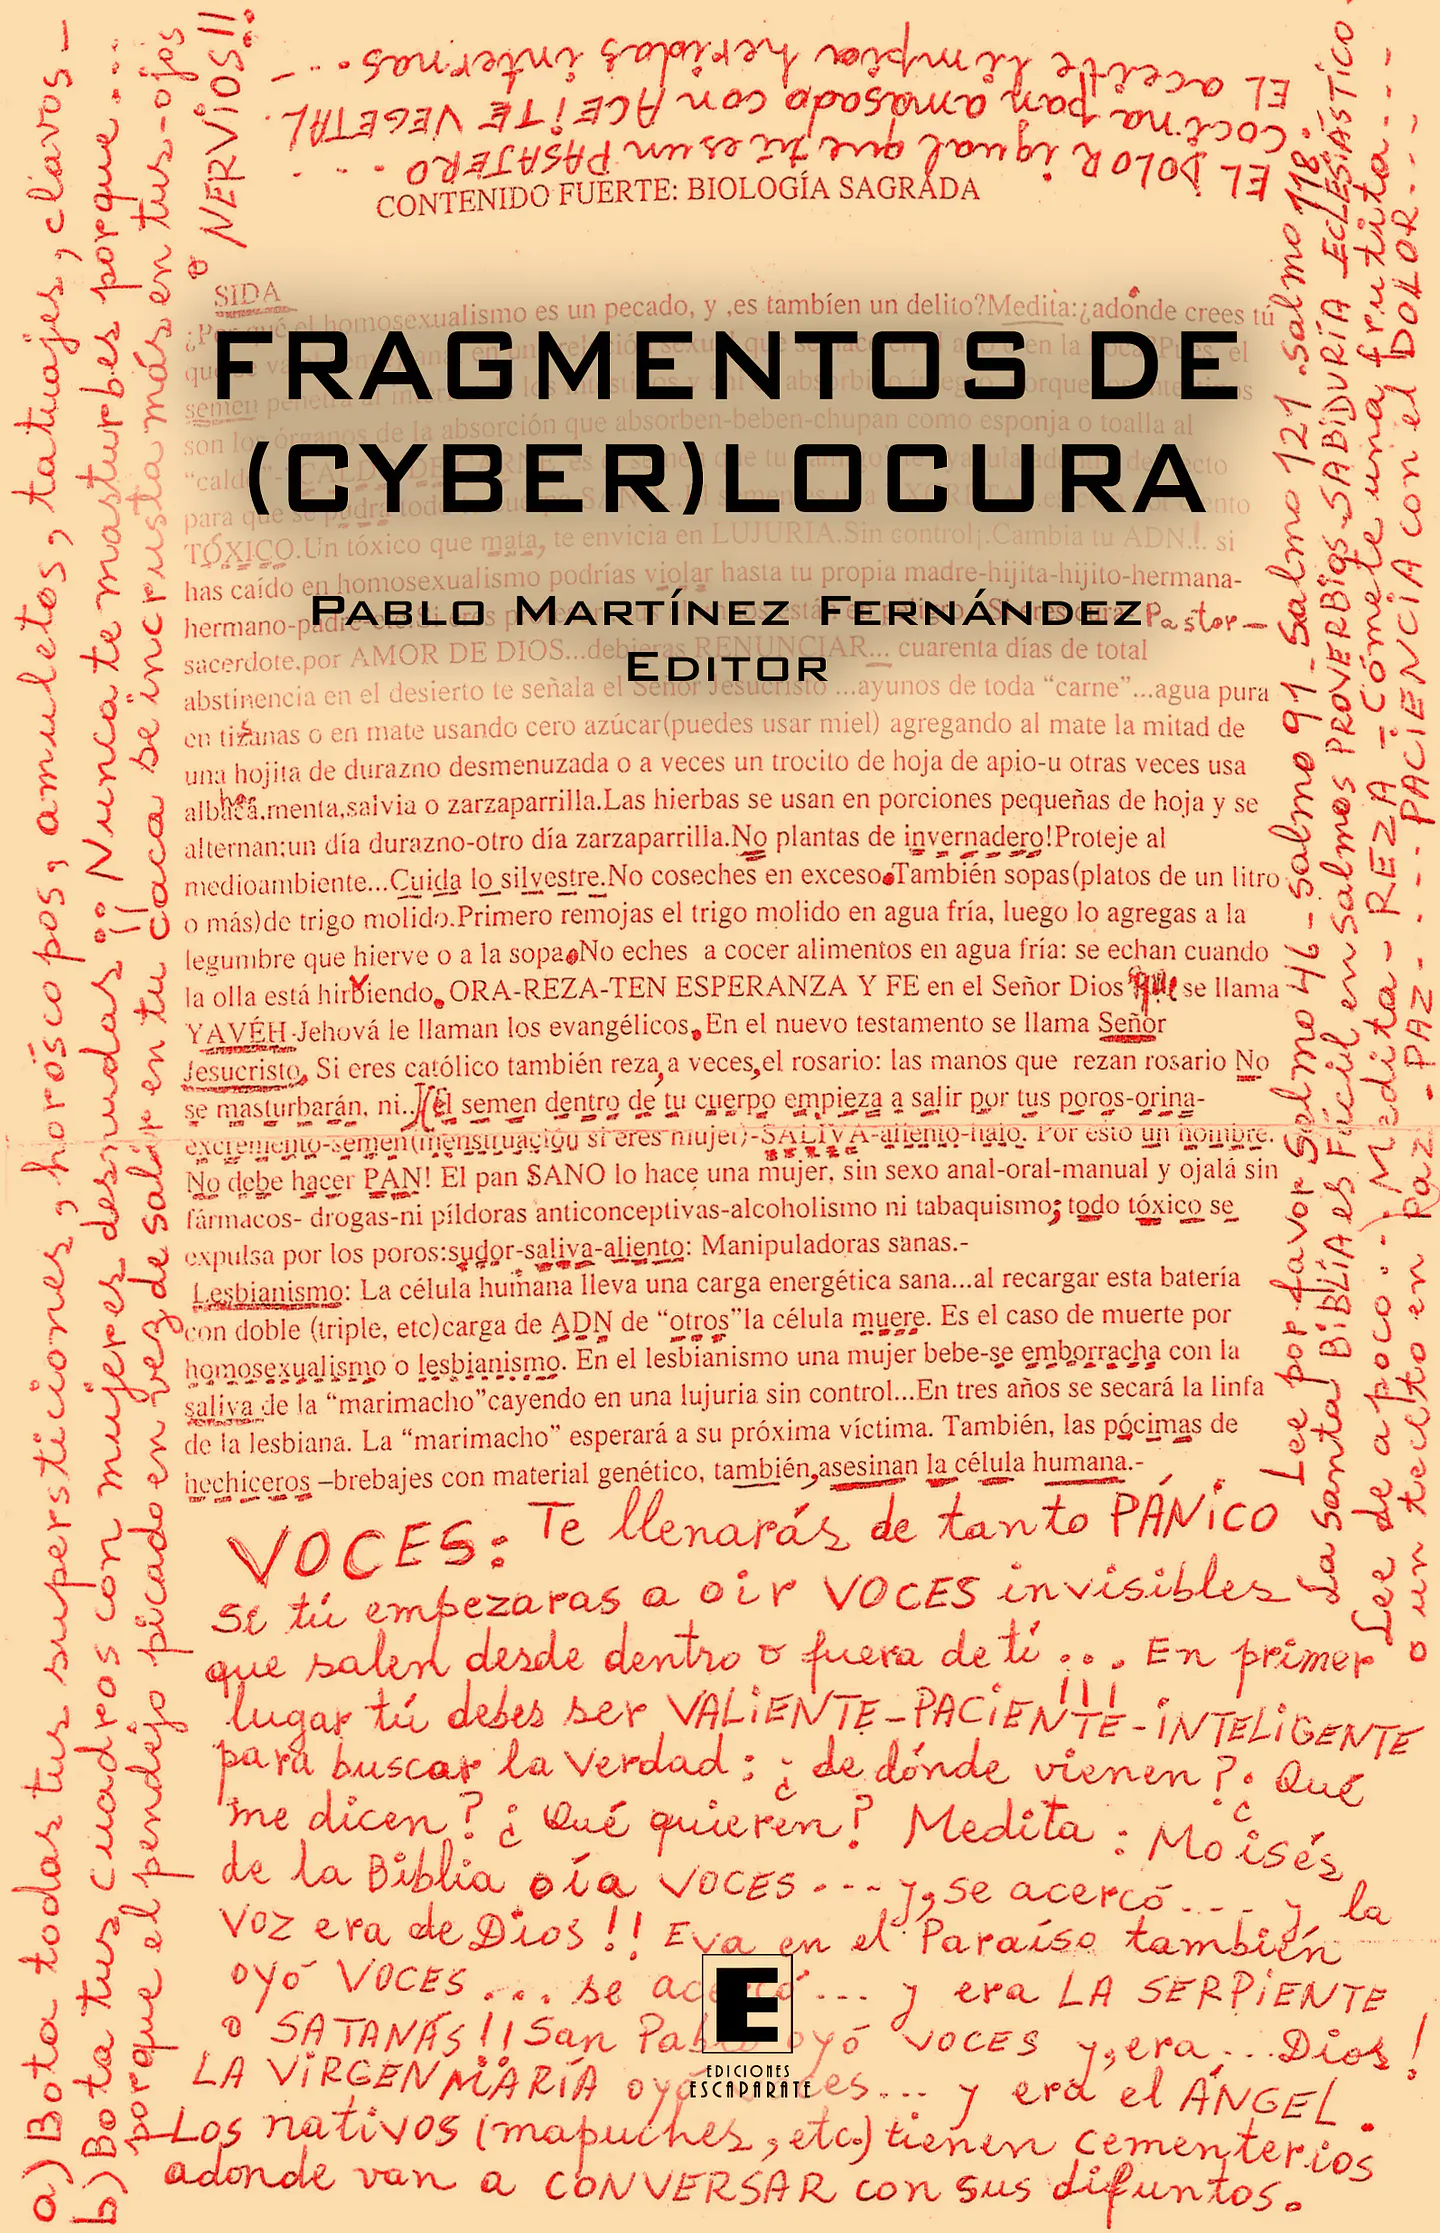 EL DOLOR igual que tú es un PASAJERO . . . .
COCINA pan amasado con ACEITE VEGETAL.
EL aceite limpia heridas internas. . . . –
CONTENIDO FUERTE: BIOLOGÍA SAGRADA
SIDA
¿Por qué el homosexualismo es un pecado, y ,es tambíen un delito?Medita:¿adónde crees tú
FRAGMENTOS DE
(CYBER)LOCURA
PABLO MARTÍNEZ FERNÁNDEZ
EDITOR
semen penetra al
son los órganos de la absorción que absorben-beben-chupan como esponja o toalla al
para que se pudra todo
TÓXICO.Un tóxico que mata, te envicia en LUJURIA.Sin control¡.Cambia tu ADN.!. si
has caído en homosexualismo podrías violar hasta tu propia madre-hijita-hijito-hermana-
hermano-padre-etc. Pastor–
sacerdote.por AMOR DE DIOS...debieras RENUNCIAR... cuarenta días de total
abstinencia en el desierto te señala el Señor Jesucristo ...ayunos de toda “carne”...agua pura
en tizanas o en mate usando cero azúcar(puedes usar miel) agregando al mate la mitad de
una hojita de durazno desmenuzada o a veces un trocito de hoja de apio-u otras veces usa
menta,salvia o zarzaparrilla.Las hierbas se usan en porciones pequeñas de hoja y se
alternan:un día durazno-otro día zarzaparrilla.No plantas de invernadero!Proteje al
medioambiente...Cuida lo silvestre.No coseches en exceso.También sopas(platos de un litro
o más)de trigo molido.Primero remojas el trigo molido en agua fría, luego lo agregas a la
legumbre que hierve o a la sopa.No eches a cocer alimentos en agua fría: se echan cuando
la olla está hirviendo. ORA-REZA-TEN ESPERANZA Y FE en el Señor Dios que se llama
YAVÉH-Jehová le llaman los evangélicos.En el nuevo testamento se llama Señor
Jesucristo. Si eres católico también reza,a veces,el rosario: las manos que rezan rosario No
se masturbarán, ni..(El semen dentro de tu cuerpo empieza a salir por tus poros-orina-
excremento-semen(menstruación si eres mujer)-SALIVA-aliento-halo. Por ésto un hombre.
No debe hacer PAN! El pan SANO lo hace una mujer, sin sexo anal-oral-manual y ojalá sin
fármacos- drogas-ni píldoras anticonceptivas-alcoholismo ni tabaquismo; todo tóxico se
expulsa por los poros:sudor-saliva-aliento: Manipuladoras sanas.-
Lesbianismo: La célula humana lleva una carga energética sana...al recargar esta batería
con doble (triple, etc)carga de ADN de “otros”la célula muere. Es el caso de muerte por
homosexualismo o lesbianismo. En el lesbianismo una mujer bebe-se emborracha con la
saliva de la “marimacho”cayendo en una lujuria sin control...En tres años se secará la linfa
de la lesbiana. La “marimacho” esperará a su próxima víctima. También, las pócimas de
hechiceros –brebajes con material genético, también,asesinan la célula humana.-
VOCES: Te llenarás de tanto PÁNiCO
si tú empezaras a oir VOCES invisibles
que salen desde dentro o fuera de tí ... En primer
lugar tú debes ser VALiENTE–PACiENTE–iNTELiGENTE
para buscar la verdad: ¿de dónde vienen? ¿Qué
me dicen? ¿Qué quieren? Medita: Moisés
de la Biblia oía VOCES ... y,se acercó.... y la
voz era de Dios!! Eva en el Paraíso también
oyó VOCES ... se acercó ... y era LA SERPiENTE
o SATANÁS!! San Pablo oyó VOCES y,era... Dios!
LA ViRGEN MARÍA oyó voces... y era el ÁNGEL.
Los nativos (mapuches, etc.) tienen cementerios
adonde van a CONVERSAR con sus difuntos.
E
EDICIONES
ESCAPARATE
a) Bota todas tus supersticiones y horóscopos, amuletos, tatuajes, clavos –
b) Bota tus cuadros con mujeres desnudas!! Nunca te masturbes porque...
porque el pendejo picado en vez de salir en tu caca se incrusta más en tus-ojos
o NERViOS!!
Lee por favor Salmo 46 – Salmo 91 – Salmo 121 – Salmo 118.
La Santa BiBLiA es Fácil en Salmos PROVERBios-SABiDURÍA ECLESiÁSTiCO
Lee de a poco... Medita – REZA – Cómete una frutita...
o un tecito en Paz... PAZ.... PACiENCiA con el DOLOR....